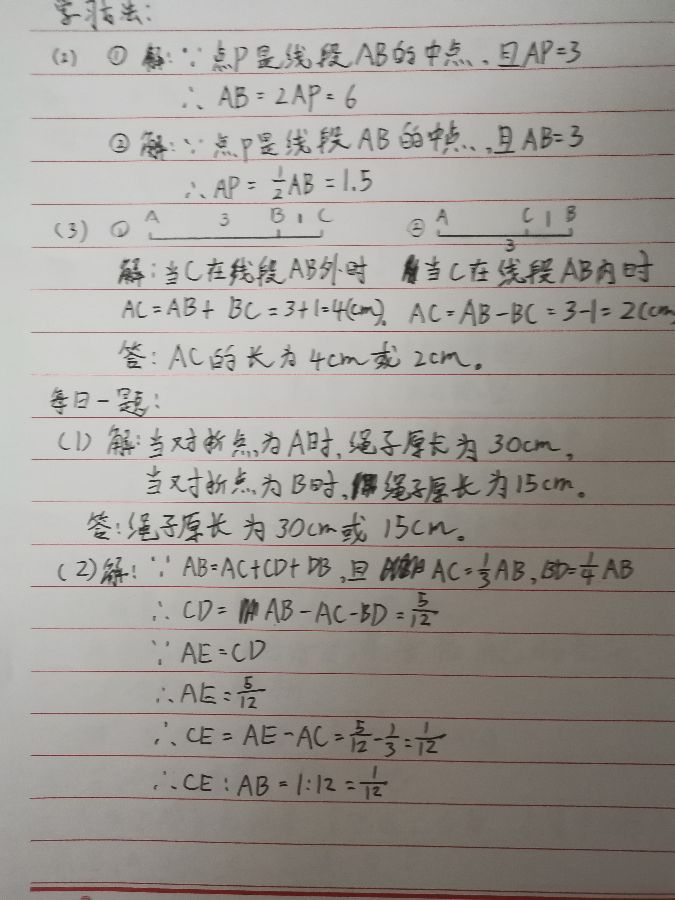 学习方法：
(2) ① 解：∵ 点P是线段AB的中点，且AP=3
∴ AB = 2AP = 6
② 解：∵ 点P是线段AB的中点，且AB=3
∴ AP = 1/2 AB = 1.5
(3) ① A 3 B 1 C ② A C 1 B 3
解：当C在线段AB外时 当C在线段AB内时
AC = AB + BC = 3+1=4(cm)， AC = AB - BC = 3-1 = 2(cm
答：AC的长为4cm或2cm。
每日一题：
(1) 解：当对折点为A时，绳子原长为30cm，
当对折点为B时，绳子原长为15cm。
答：绳子原长为30cm或15cm。
(2) 解：∵ AB=AC+CD+DB，且 AC=1/3 AB，BD=1/4 AB
∴ CD = AB - AC - BD = 5/12
∵ AE = CD
∴ AE = 5/12
∴ CE = AE - AC = 5/12 - 1/3 = 1/12
∴ CE : AB = 1:12 = 1/12